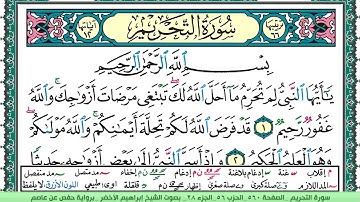 سُورَةُ التَّحْرِيمِ
بِسْمِ اللَّهِ الرَّحْمَٰنِ الرَّحِيمِ
يَٰٓأَيُّهَا النَّبِيُّ لِمَ تُحَرِّمُ مَآ أَحَلَّ اللَّهُ لَكَ ۖ تَبْتَغِى مَرْضَاتَ أَزْوَٰجِكَ ۚ وَاللَّهُ
غَفُورٌ رَّحِيمٌ ١ قَدْ فَرَضَ اللَّهُ لَكُمْ تَحِلَّةَ أَيْمَٰنِكُمْ ۚ وَاللَّهُ مَوْلَىٰكُمْ ۖ
وَهُوَ الْعَلِيمُ الْحَكِيمُ ٢ وَإِذْ أَسَرَّ النَّبِيُّ إِلَىٰ بَعْضِ أَزْوَٰجِهِ حَدِيثًا
سورة التحريم الصفحة ٥٦٠ الحزب ٥٦ الجزء ٢٨ بصوت الشيخ إبراهيم الأخضر رواية حفص عن عاصم